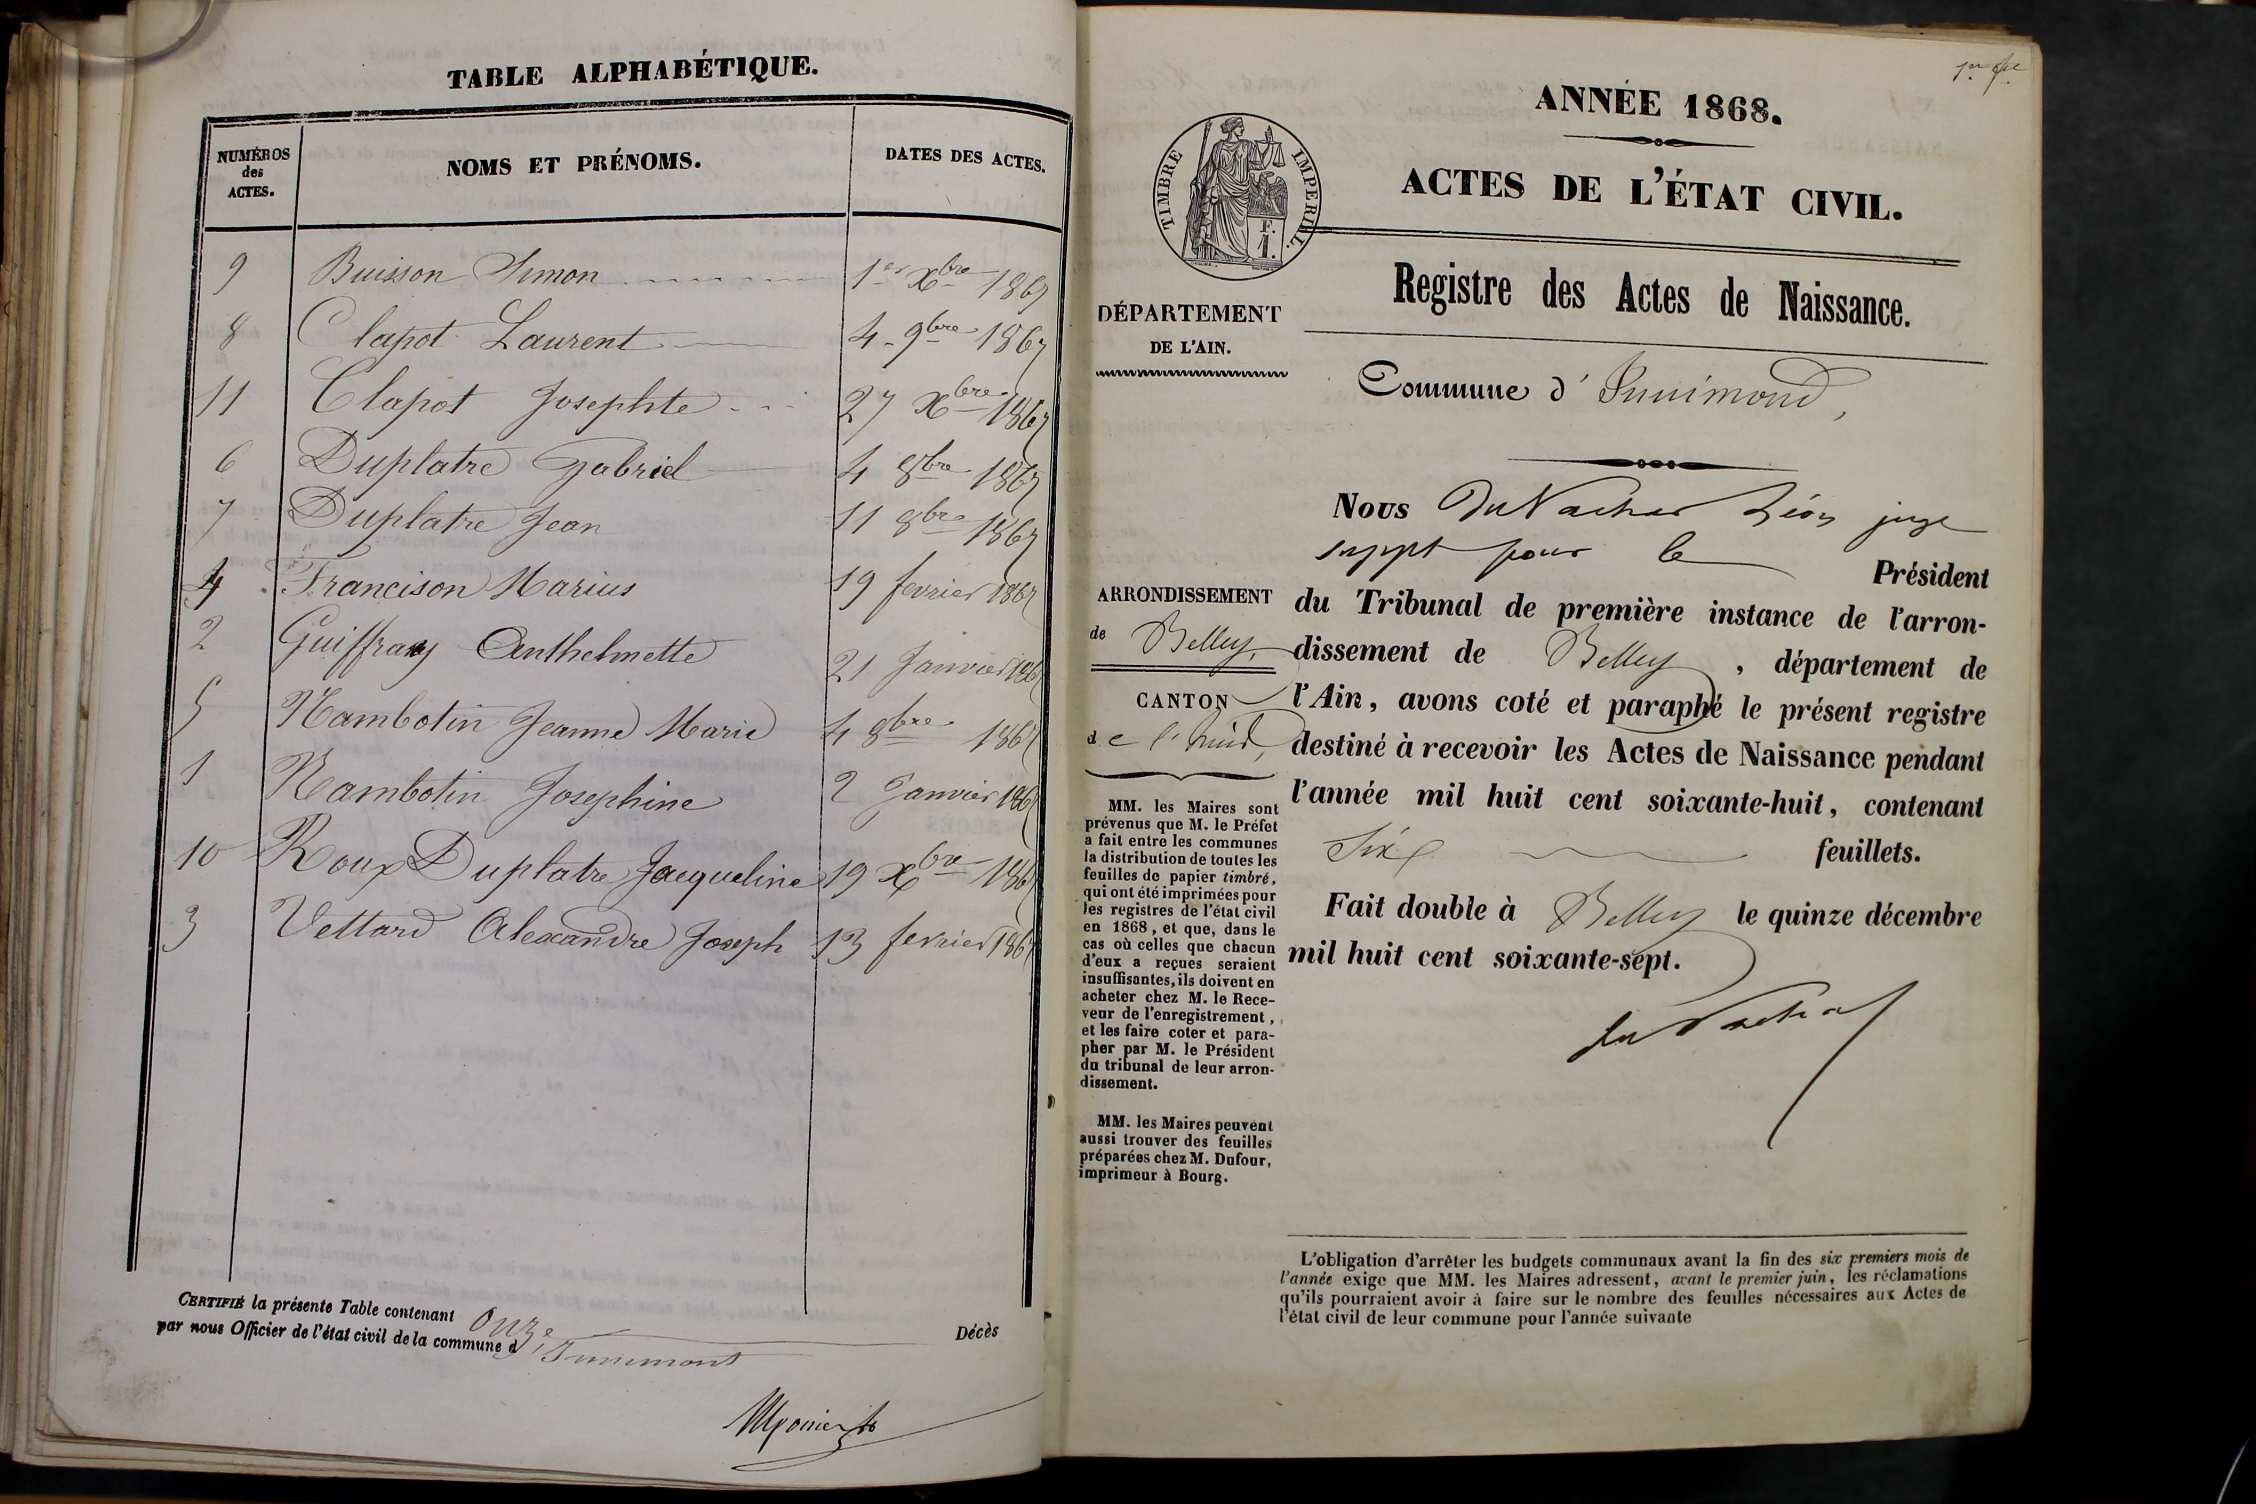 TABLE ALPHABÉTIQUE.
NUMÉROS des ACTES.
NOMS ET PRÉNOMS.
DATES DES ACTES.
9 Buisson Simon 1er Xbre 1867
8 Clapot Laurent 4 9bre 1867
11 Clapot Josephte 27 Xbre 1867
6 Duplatre Gabriel 4 8bre 1867
7 Duplatre Jean 11 8bre 1867
4 Francison Marius 19 fevrier 1867
2 Guiffray Anthelmette 21 Janvier 1867
5 Rambotin Jeanne Marie 4 8bre 1867
1 Rambotin Josephine 2 Janvier 1867
10 Roux Duplatre Jacqueline 19 Xbre 1867
3 Vettard Alexandre Joseph 13 fevrier 1867
CERTIFIÉ la présente Table contenant onze Décès
par nous Officier de l'état civil de la commune d'Innimont
1er fet
ANNÉE 1868.
ACTES DE L'ÉTAT CIVIL.
TIMBRE IMPERIAL.
F.
1.
Registre des Actes de Naissance.
DÉPARTEMENT
DE L'AIN.
Commune d'Innimond,
ARRONDISSEMENT
de Belley,
CANTON
de l'huis,
MM. les Maires sont
prévenus que M. le Préfet
a fait entre les communes
la distribution de toutes les
feuilles de papier timbré,
qui ont été imprimées pour
les registres de l'état civil
en 1868, et que, dans le
cas où celles que chacun
d'eux a reçues seraient
insuffisantes, ils doivent en
acheter chez M. le Rece-
veur de l'enregistrement,
et les faire coter et para-
pher par M. le Président
du tribunal de leur arron-
dissement.
MM. les Maires peuvent
aussi trouver des feuilles
préparées chez M. Dufour,
imprimeur à Bourg.
Nous DuVachat Léon juge
suppt pour le Président
du Tribunal de première instance de l'arron-
dissement de Belley, département de
l'Ain, avons coté et paraphé le présent registre
destiné à recevoir les Actes de Naissance pendant
l'année mil huit cent soixante-huit, contenant
Six feuillets.
Fait double à Belley le quinze décembre
mil huit cent soixante-sept.
du Vachat
L'obligation d'arrêter les budgets communaux avant la fin des six premiers mois de
l'année exige que MM. les Maires adressent, avant le premier juin, les réclamations
qu'ils pourraient avoir à faire sur le nombre des feuilles nécessaires aux Actes de
l'état civil de leur commune pour l'année suivante